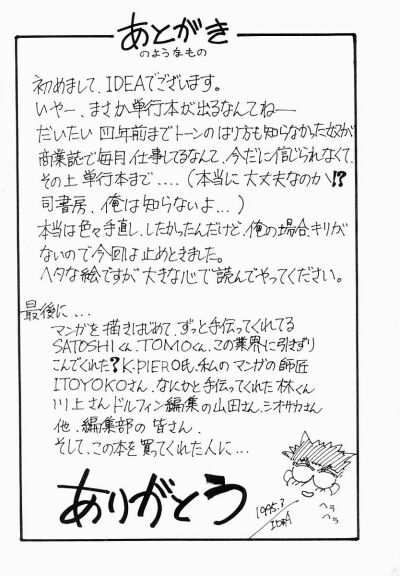 あとがき
のようなもの
初めまして、IDEAでございます。
いやー、まさか単行本が出るなんてねー
だいたい四年前までトーンのはり方も知らなかった奴が
商業誌で毎月仕事してるなんて、今だに信じられなくて、
その上単行本まで‥‥(本当に大丈夫なのか!?
司書房、俺は知らないよ...)
本当は色々手直ししたかったんだけど、俺の場合、キリが
ないので今回は止めときました。
ヘタな絵ですが大きな心で読んでやってください。
最後に...
マンガを描きはじめて、ずっと手伝ってくれてる
SATOSHIくん、TOMOくん、この業界に引きずり
こんでくれた?K・PIERO氏、私のマンガの師匠
ITOYOKOさん、なにかと手伝ってくれた林くん
川上さん、ドルフィン編集の山田さん、シオサカさん
他、編集部の皆さん、
そして、この本を買ってくれた人に...
ありがとう
1995.3
IDEA
ヘラ
ヘラ